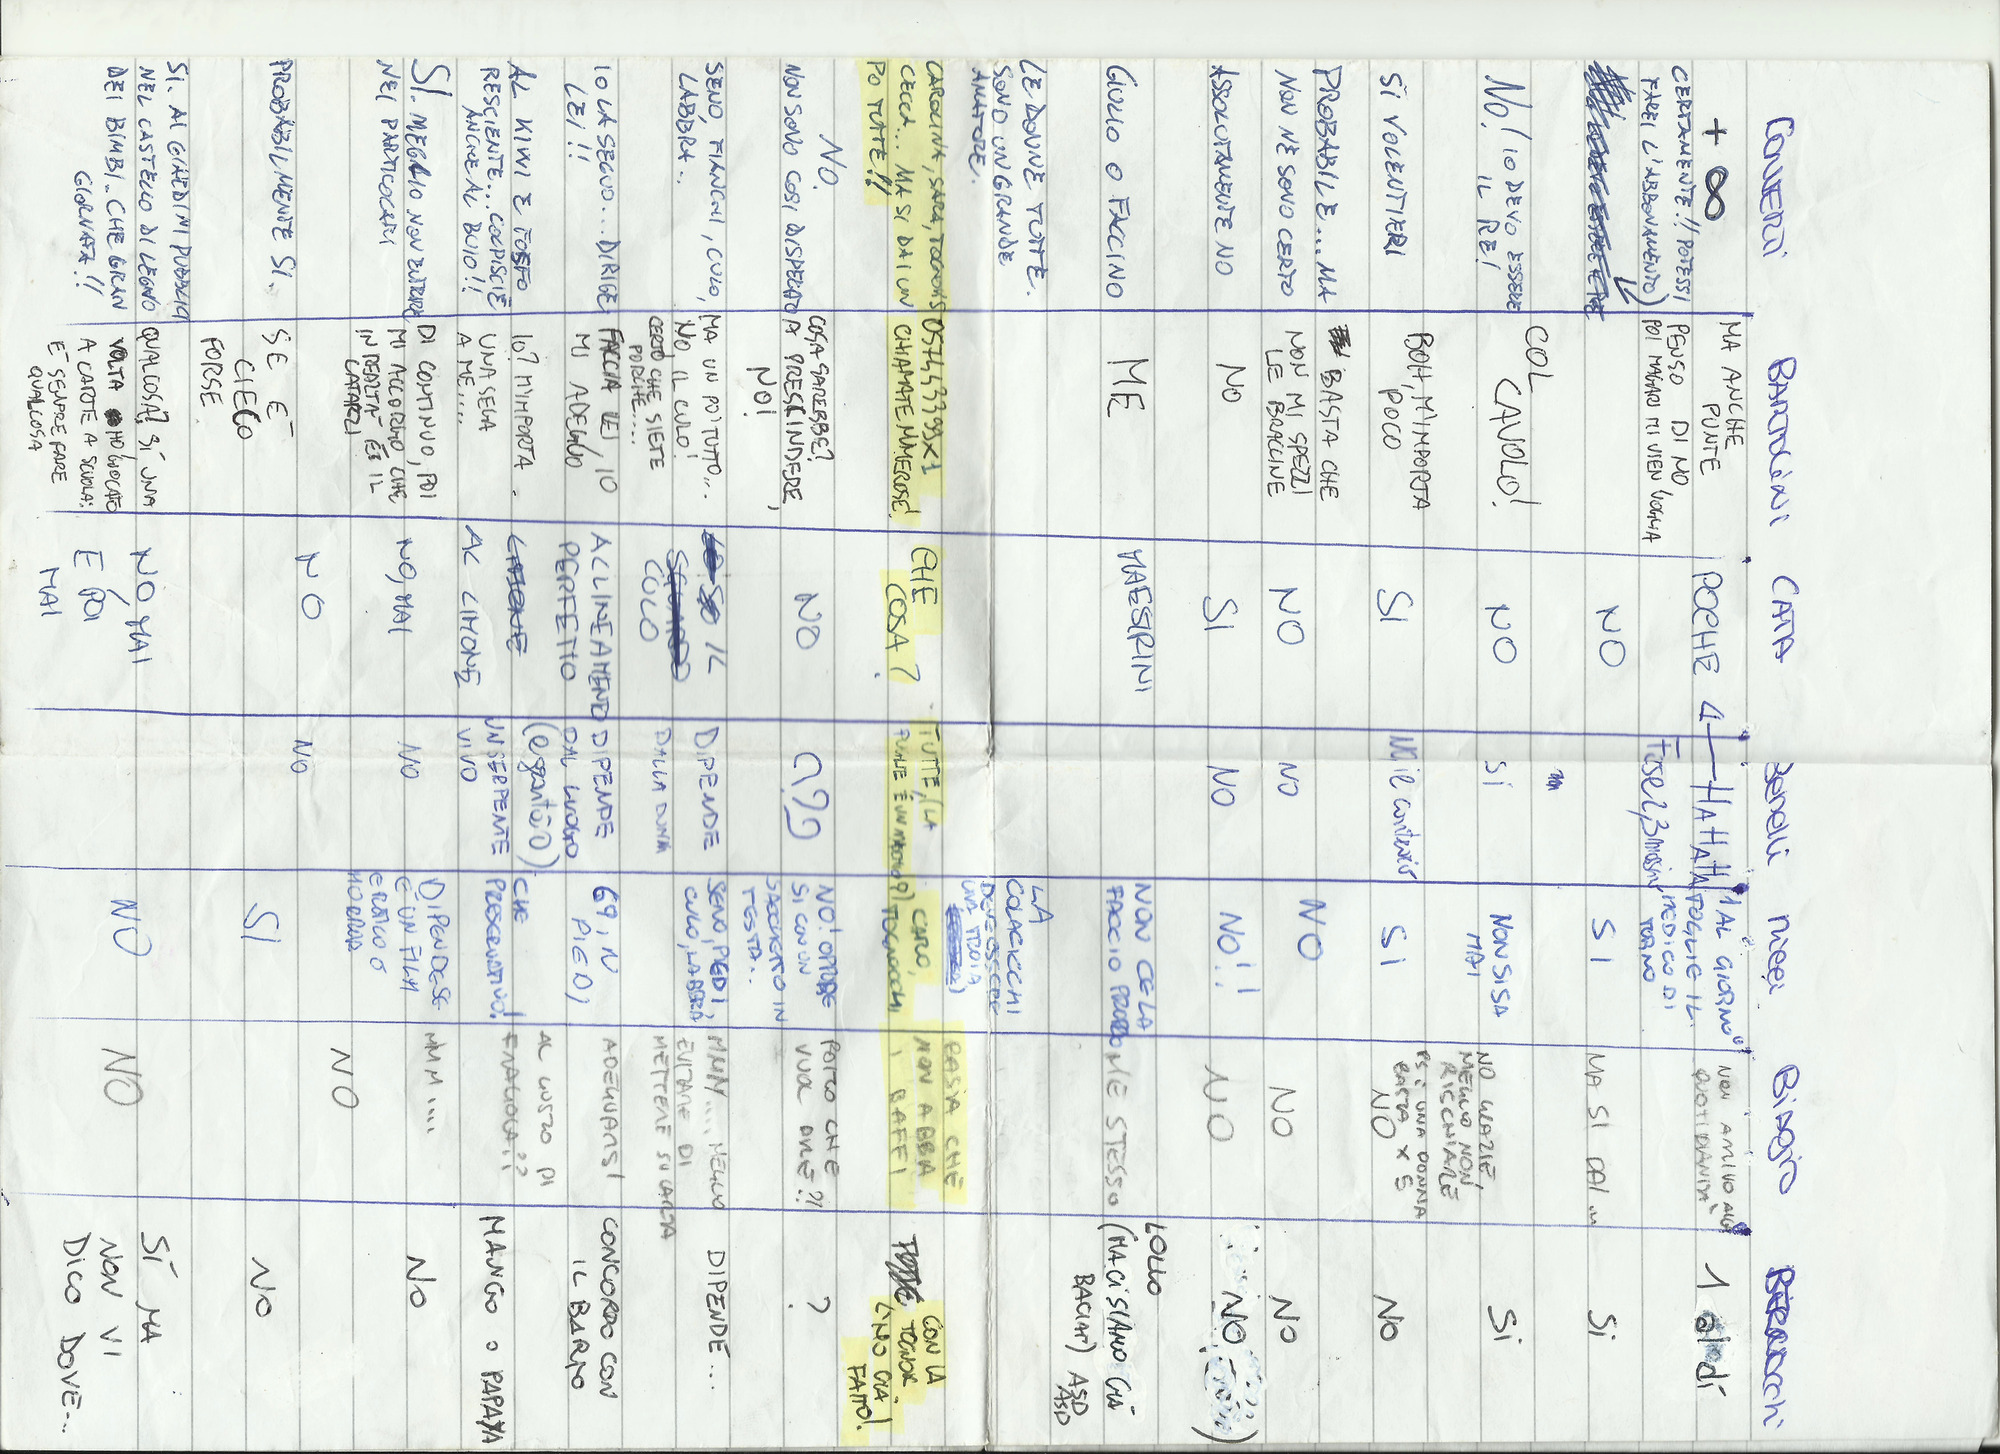 Bartolini
CATA
Bendi
nicci
Biagio
+ ∞
MA ANCHE
PUNTE
POCHE
4
HAHAHA
1 AL GIORNO
TOGLIE IL
MEDICO DI
TORNO
NON ARRIVO ALLA
QUOTIDIANITÀ
1 al dì
CERTAMENTE!! POTESSI
FAREI L'ABBONAMENTO
PENSO DI NO
POI MAGARI MI VIEN VOGLIA
NO
SI
MA SI DAI...
Si
NO! IO DEVO ESSERE
IL RE!
COL
CAVOLO!
NO
SI
NON SI SA
MAI
NO GRAZIE,
MEGLIO NON
RISCHIARE
Si
SI VOLENTIERI
BOH, M'IMPORTA
POCO
SI
SI
PS: UNA DONNA
BASTA X E
NO
NO
PROBABILE... MA
NON NE SONO CERTO
BASTA CHE
NON MI SPEZZI
LE BRACCINE
NO
NO
NO
NO
NO
ASSOLUTAMENTE NO
NO
SI
NO
NO!!
NO
NO
GIULIO O FACCINO
ME
MAESTRINI
NON CE LA
FACCIO
ME STESSO
LOLLO
(MA CI SIAMO GIÀ
BACIATI) ASD
ASD
LE DONNE TUTTE.
SONO UN GRANDE
AMATORE.
LA
COLACICCHI
DEVE ESSERE
UNA TROIA
CAROLINA, SARA,
CECCA... MA SI DAI UN
PO TUTTE!!
CHIAMATE NUMEROSE!
CHE
COSA?
TUTTE, (LA
CARO,
BASTA CHE
NON ABBIA
I BAFFI
CON LA
TOGNOR.
L'HO GIÀ
FATTO!
NO.
NON SONO COSÌ DISPERATO
COSA SAREBBE?
A PRESCINDERE,
NO!
NO
???
NO! OPPURE
SI CON UN
SACCHETTO IN
TESTA..
POTTO CHE
VUOL DIRE?!
?
SENO, FIANCHI, CULO,
LABBRA..
MA UN PO' TUTTO...
NO, IL CULO!
CERTO CHE SIETE
PORCHE....
IL
CULO
DIPENDE
DALLA DONNA
SENO, PIEDI,
CULO, LABBRA
MMM.... MEGLIO
EVITARE DI
METTERE SU CARTA
DIPENDE...
IO LA SEGUO... DIRIGE
LEI!!
FACCIA LEI, IO
MI ADEGUO
ALLINEAMENTO
PERFETTO
DIPENDE
DAL LUOGO
69, IN
PIEDI,
ADEGUARSI
CONCORDO CON
IL BARTO
AL KIWI E
ANCHE AL BUIO!!
IO? M'IMPORTA
UNA SEGA
A ME....
AL LIMONE
UN SERPENTE
VIVO
CHE
PRESERVATIVO!
AL GUSTO DI
FRAGOLA!!
MANGO O PAPAYA
SI. MEGLIO NON ENTRARE
NEI PARTICOLARI
DI CONTINUO, POI
MI ACCORGO CHE
IN REALTÀ È IL
CATARZI
NO, MAI
NO
DIPENDE SE
È UN FILM
EROTICO O
HORROR
MMM....
NO
PROBABILMENTE SI.
SE È
CIECO
FORSE
NO
NO
SI
NO
NO
SI. AI GIARDINI PUBBLICI
NEL CASTELLO DI LEGNO
DEI BIMBI.. CHE GRAN
GIORNATA!!
QUALCOSA? SÌ UNA
VOLTA HO GIOCATO
A CARTE A SCUOLA:
È SEMPRE FARE
QUALCOSA
NO, MAI
E POI
MAI
NO
NO
SÌ MA
NON VI
DICO DOVE...